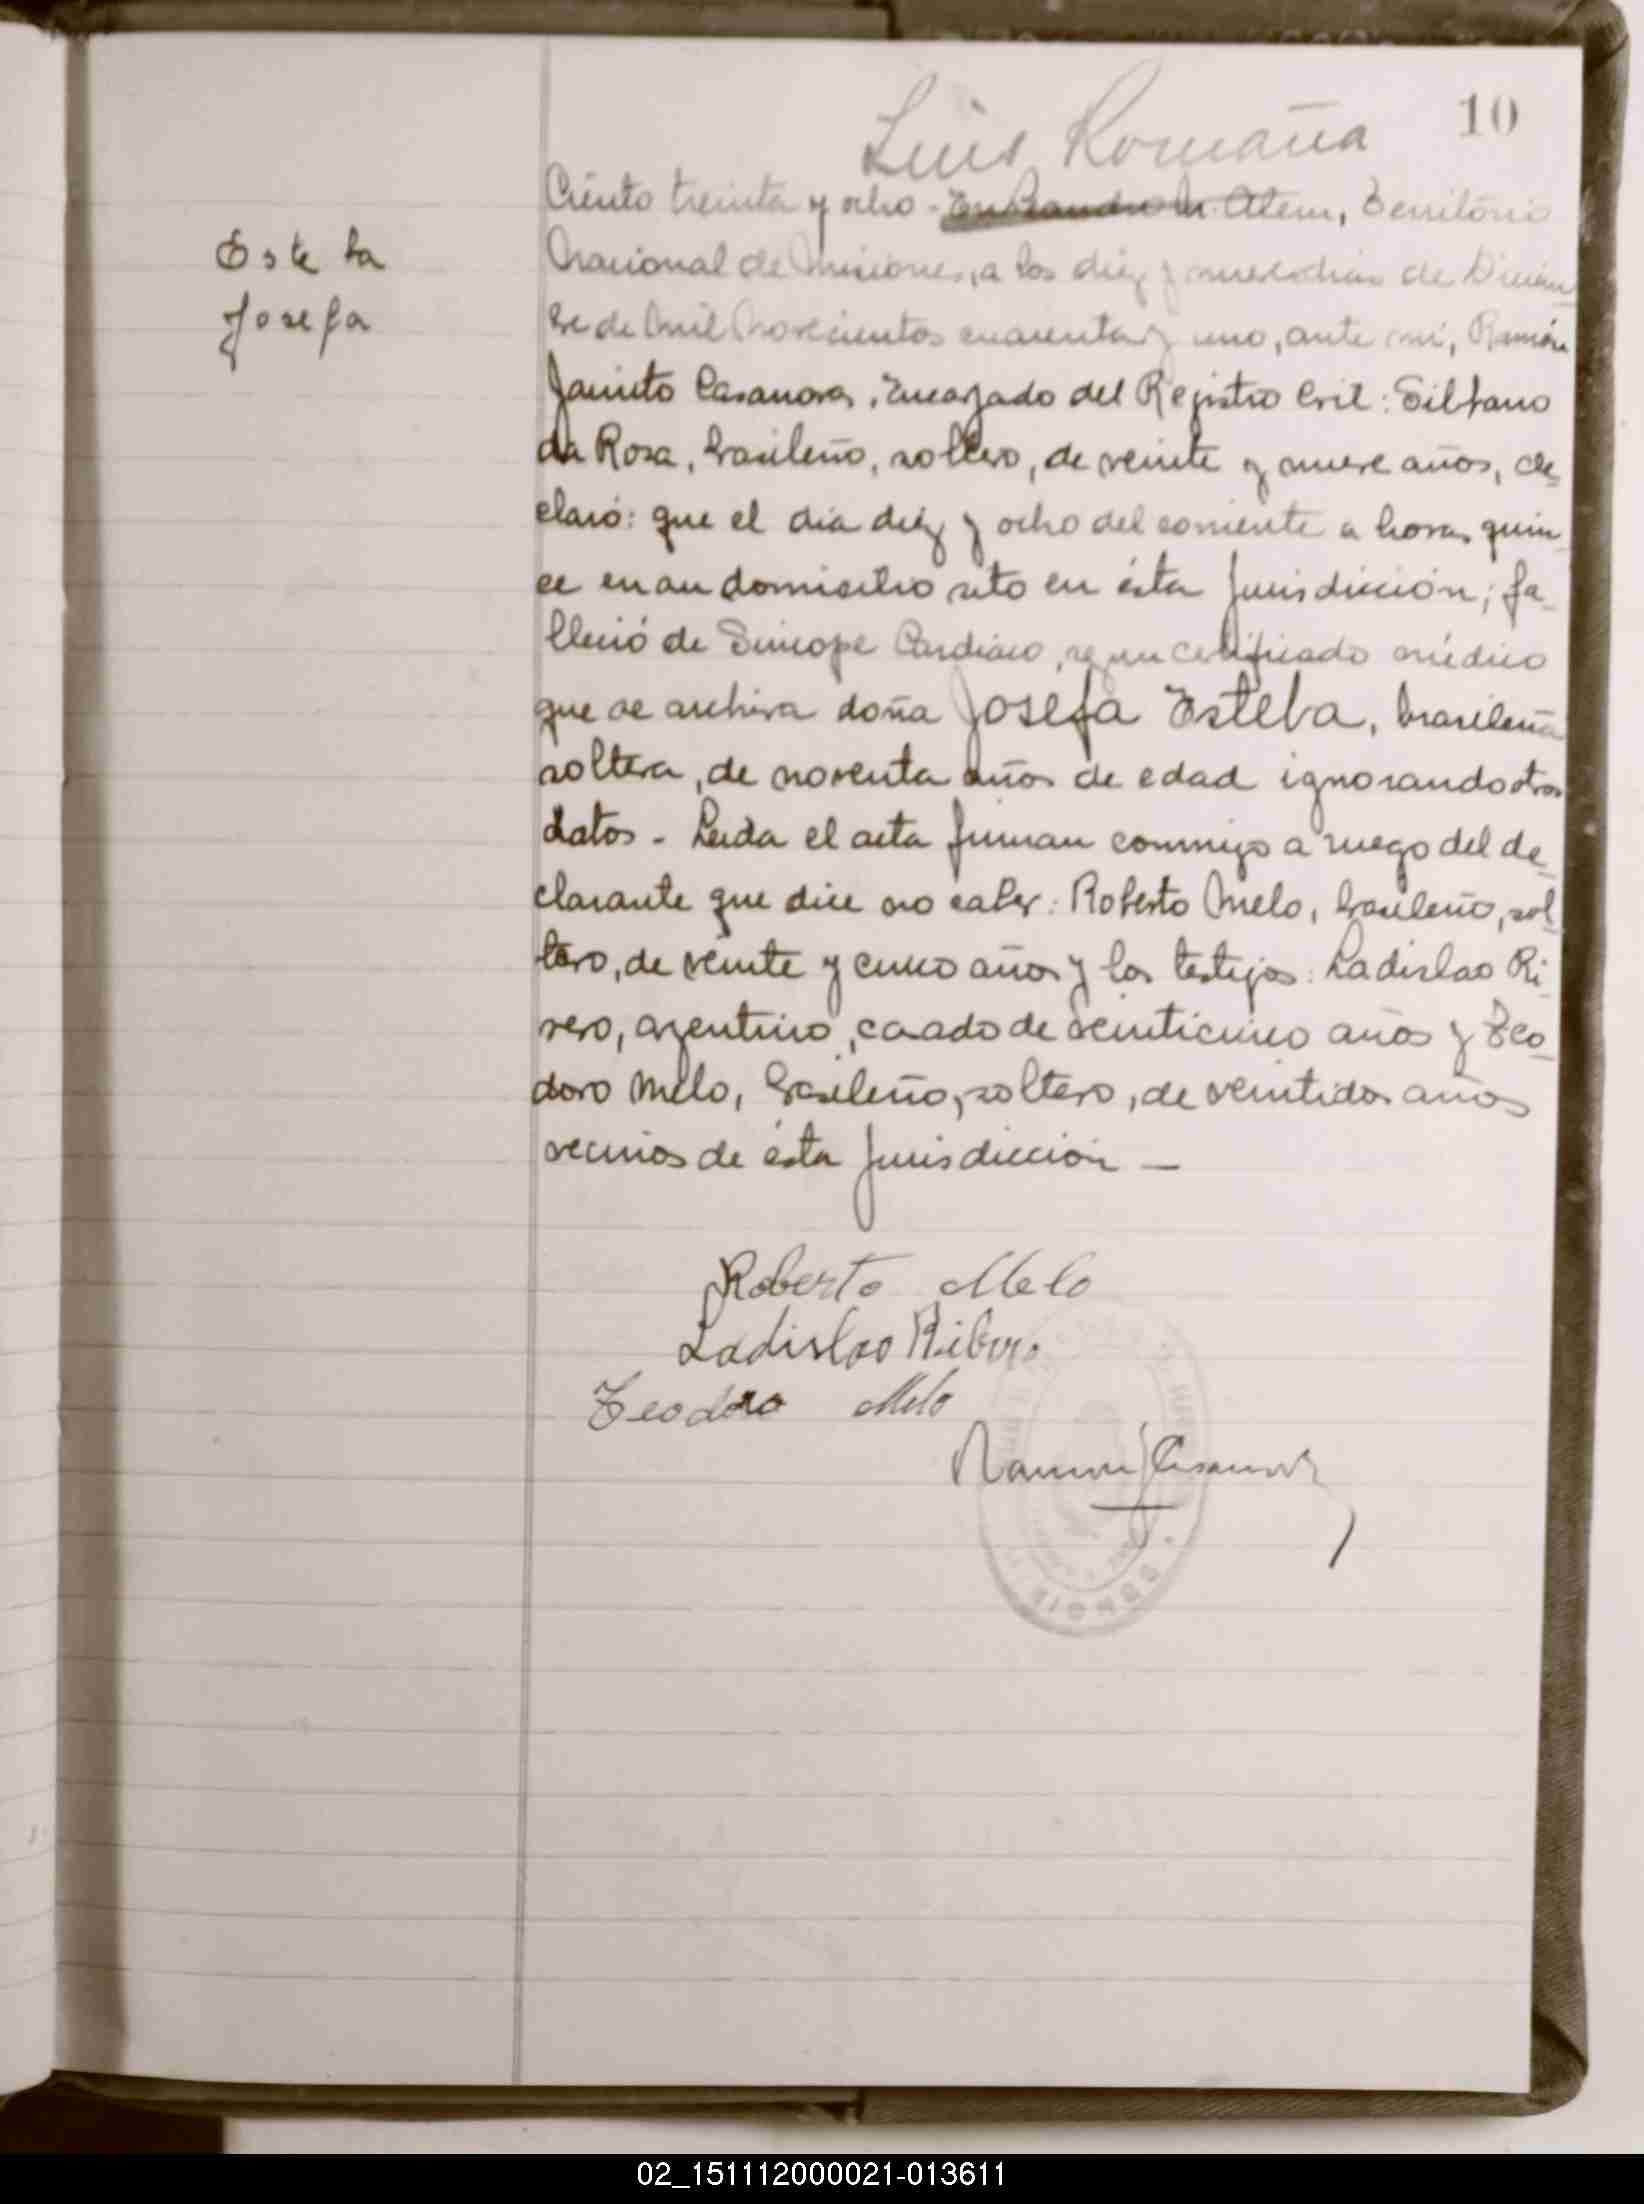 10
Luis Romaña
Ciento treinta y ocho - En Leandro N. Alem, Territorio
Esteba
Josefa
Nacional de Misiones, a los diez y nueve dias de Diciem-
bre de Mil Novecientos cuarenta y uno, ante mi, Ramón
Jacinto Casanova, Encargado del Registro Civil: Silbano
da Rosa, brasileño, soltero, de veinte y nueve años, de-
claró: que el dia diez y ocho del corriente a horas quin-
ce en su domicilio sito en ésta Jurisdicción; fa-
lleció de Sincope Cardiaco, segun certificado médico
que se archiva doña Josefa Esteba, brasileña
soltera, de noventa años de edad ignorando otros
datos - Leida el acta firman conmigo a ruego del de-
clarante que dice no saber: Roberto Melo, brasileño, sol-
tero, de veinte y cinco años y los testigos: Ladislao Ri-
vero, argentino, casado de veinticinco años y Teo-
doro Melo, brasileño, soltero, de veintidos años
vecinos de ésta Jurisdicción -
Roberto Melo
Ladislao Ribero
Teodoro Melo
Ramón J Casanova
02_151112000021-013611